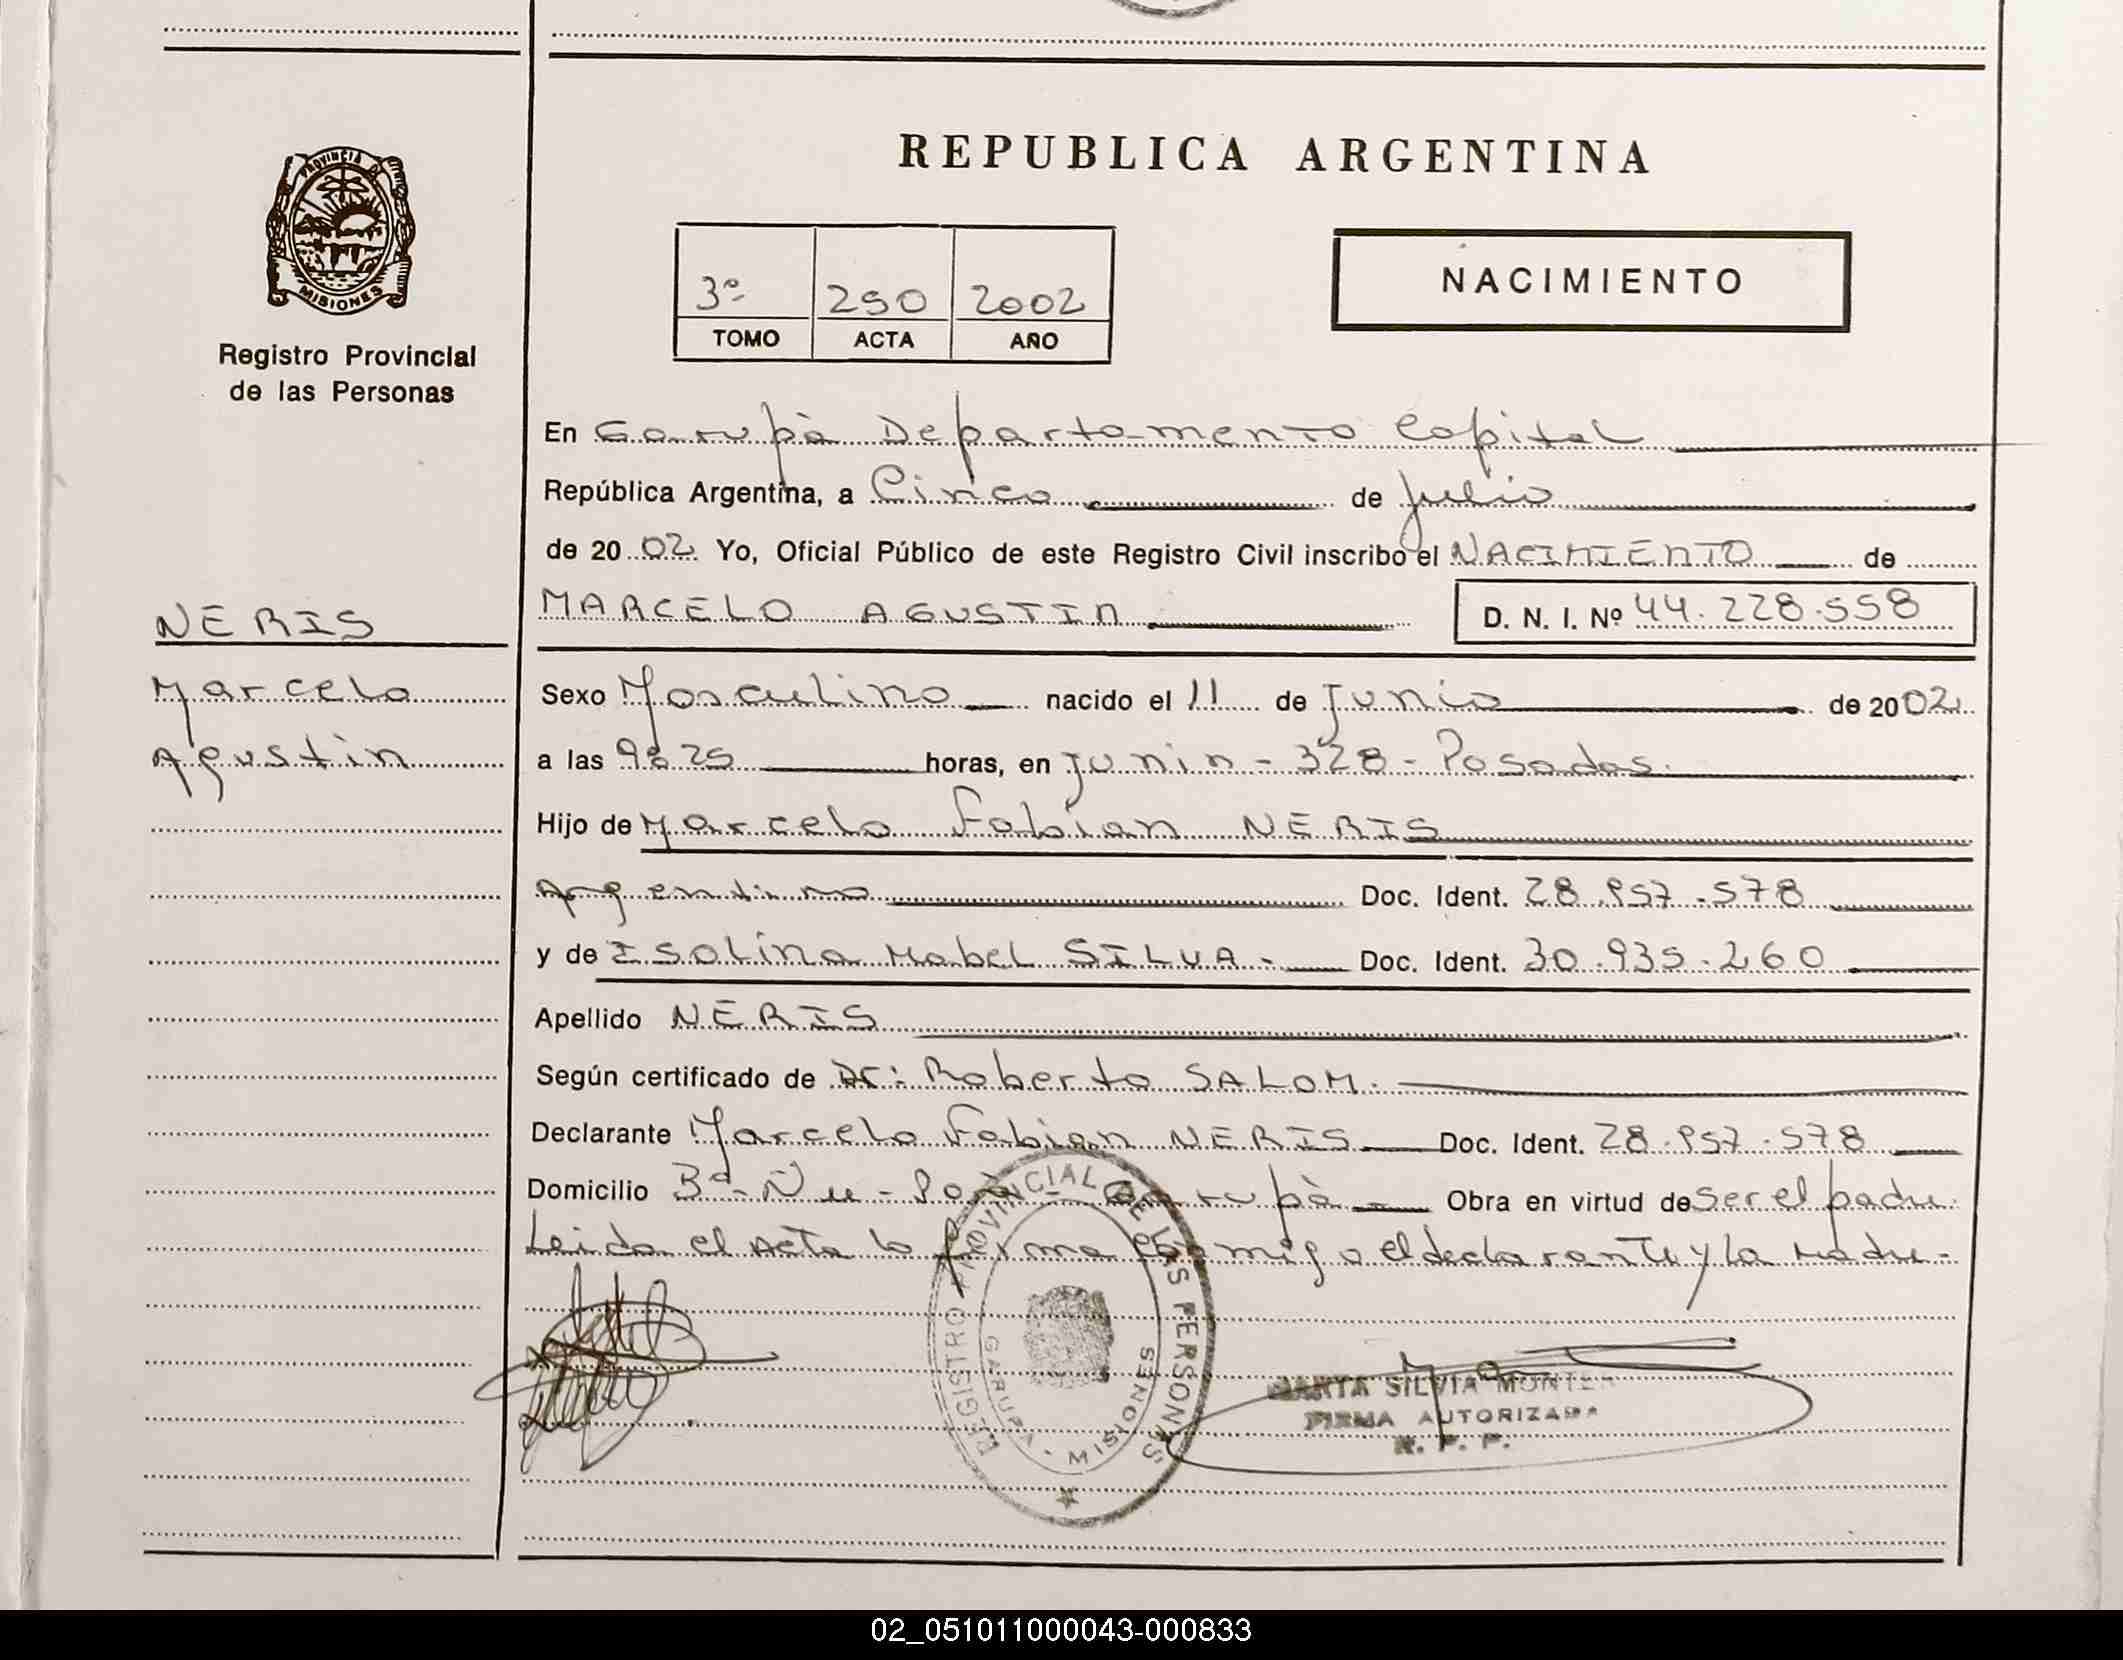 PROVINCIA DE
MISIONES
Registro Provincial
de las Personas
NERIS
Marcelo
Agustín
REPUBLICA ARGENTINA
3º 250 2002
TOMO ACTA AÑO
NACIMIENTO
En Garupà Departamento Capital
República Argentina, a Cinco de Julio
de 2002 Yo, Oficial Público de este Registro Civil inscribo el NACIMIENTO de
MARCELO AGUSTIN D. N. I. Nº 44.228.558
Sexo Masculino nacido el 11 de Junio de 2002
a las 9:25 horas, en Junin - 328 - Posadas.
Hijo de Marcelo Fabian NERIS
Argentino Doc. Ident. 28.957.578
y de Isolina Mabel SILVA - Doc. Ident. 30.935.260
Apellido NERIS
Según certificado de Dr: Roberto SALOM.
Declarante Marcelo Fabian NERIS Doc. Ident. 28.957.578
Domicilio Bº - Ñu - Porà - Garupà Obra en virtud de ser el padre.
Leida el Acta la firma conmigo el declarante y la Madre -
REGISTRO PROVINCIAL DE LAS PERSONAS
GARUPA - MISIONES
MARTA SILVIA
FIRMA AUTORIZADA
R. P. P.
02_051011000043-000833